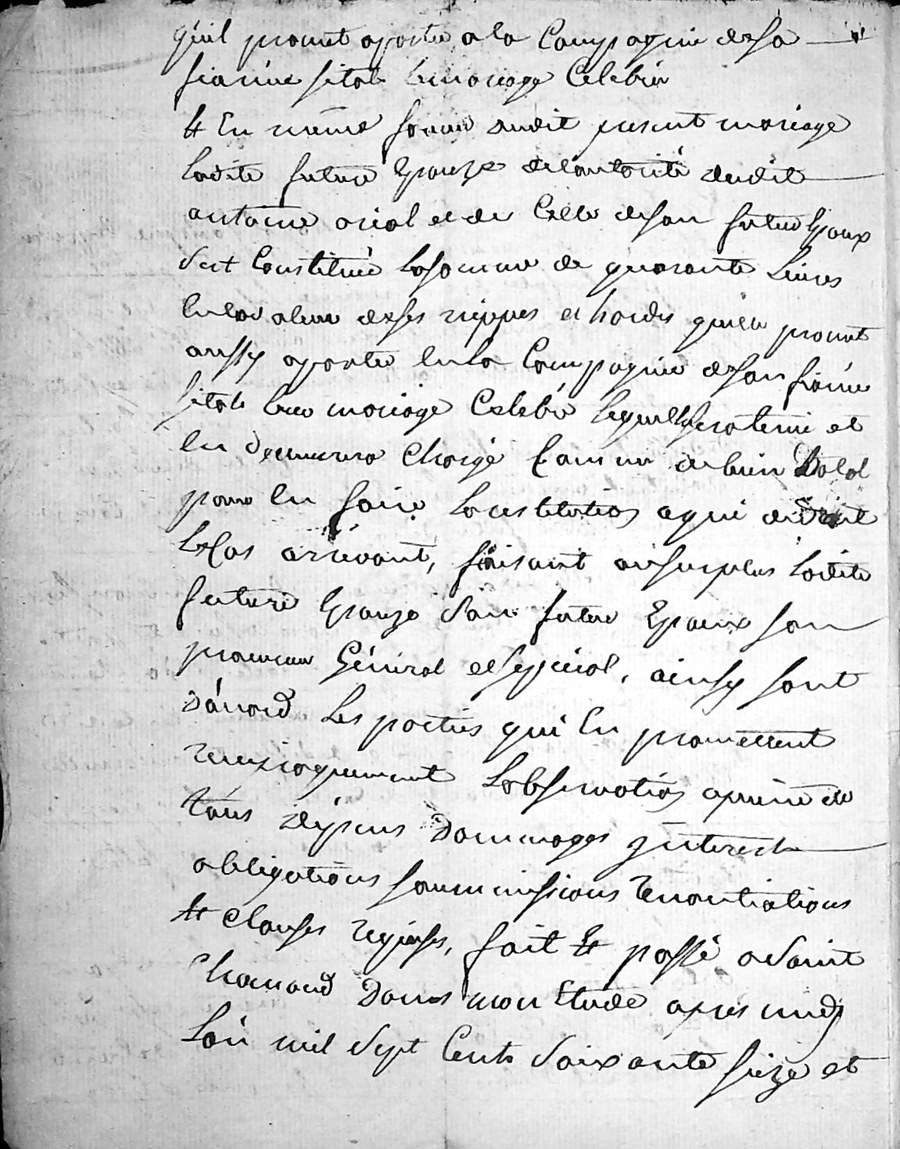 qu'il promet aporter a la Compagnie de sa
fiancée sitot le mariage Celebré
Et En meme faveur dudit present mariage
Ladite future Epouze de l'autorité dudit
antoine oriol et de Celle de son futur Epoux
s'est Constituée La somme de quarante Livres
En la valeur de ses nippes et hardes qu'elle promet
aussy aporter En la Compagnie de son fiancé
sitot leur mariage Celebré lequel sera tenu et
En demeurera Chargé Comme de bien Dotal
pour En faire La restitution a qui de droit
Le Cas arrivant, faisant au surplus Ladite
future Epouze Son futur Epoux son
procureur Général et special, ainsy sont
D'acord Les parties qui En promettent
reciproquement L'observation a peine de
tous dépens Dommages interests
obligations soummissions renontiations
Et Clauses requises, fait Et passé a Saint
Chamond Dans mon Etude apres midy
L'an mil Sept Cents Soixante seize et